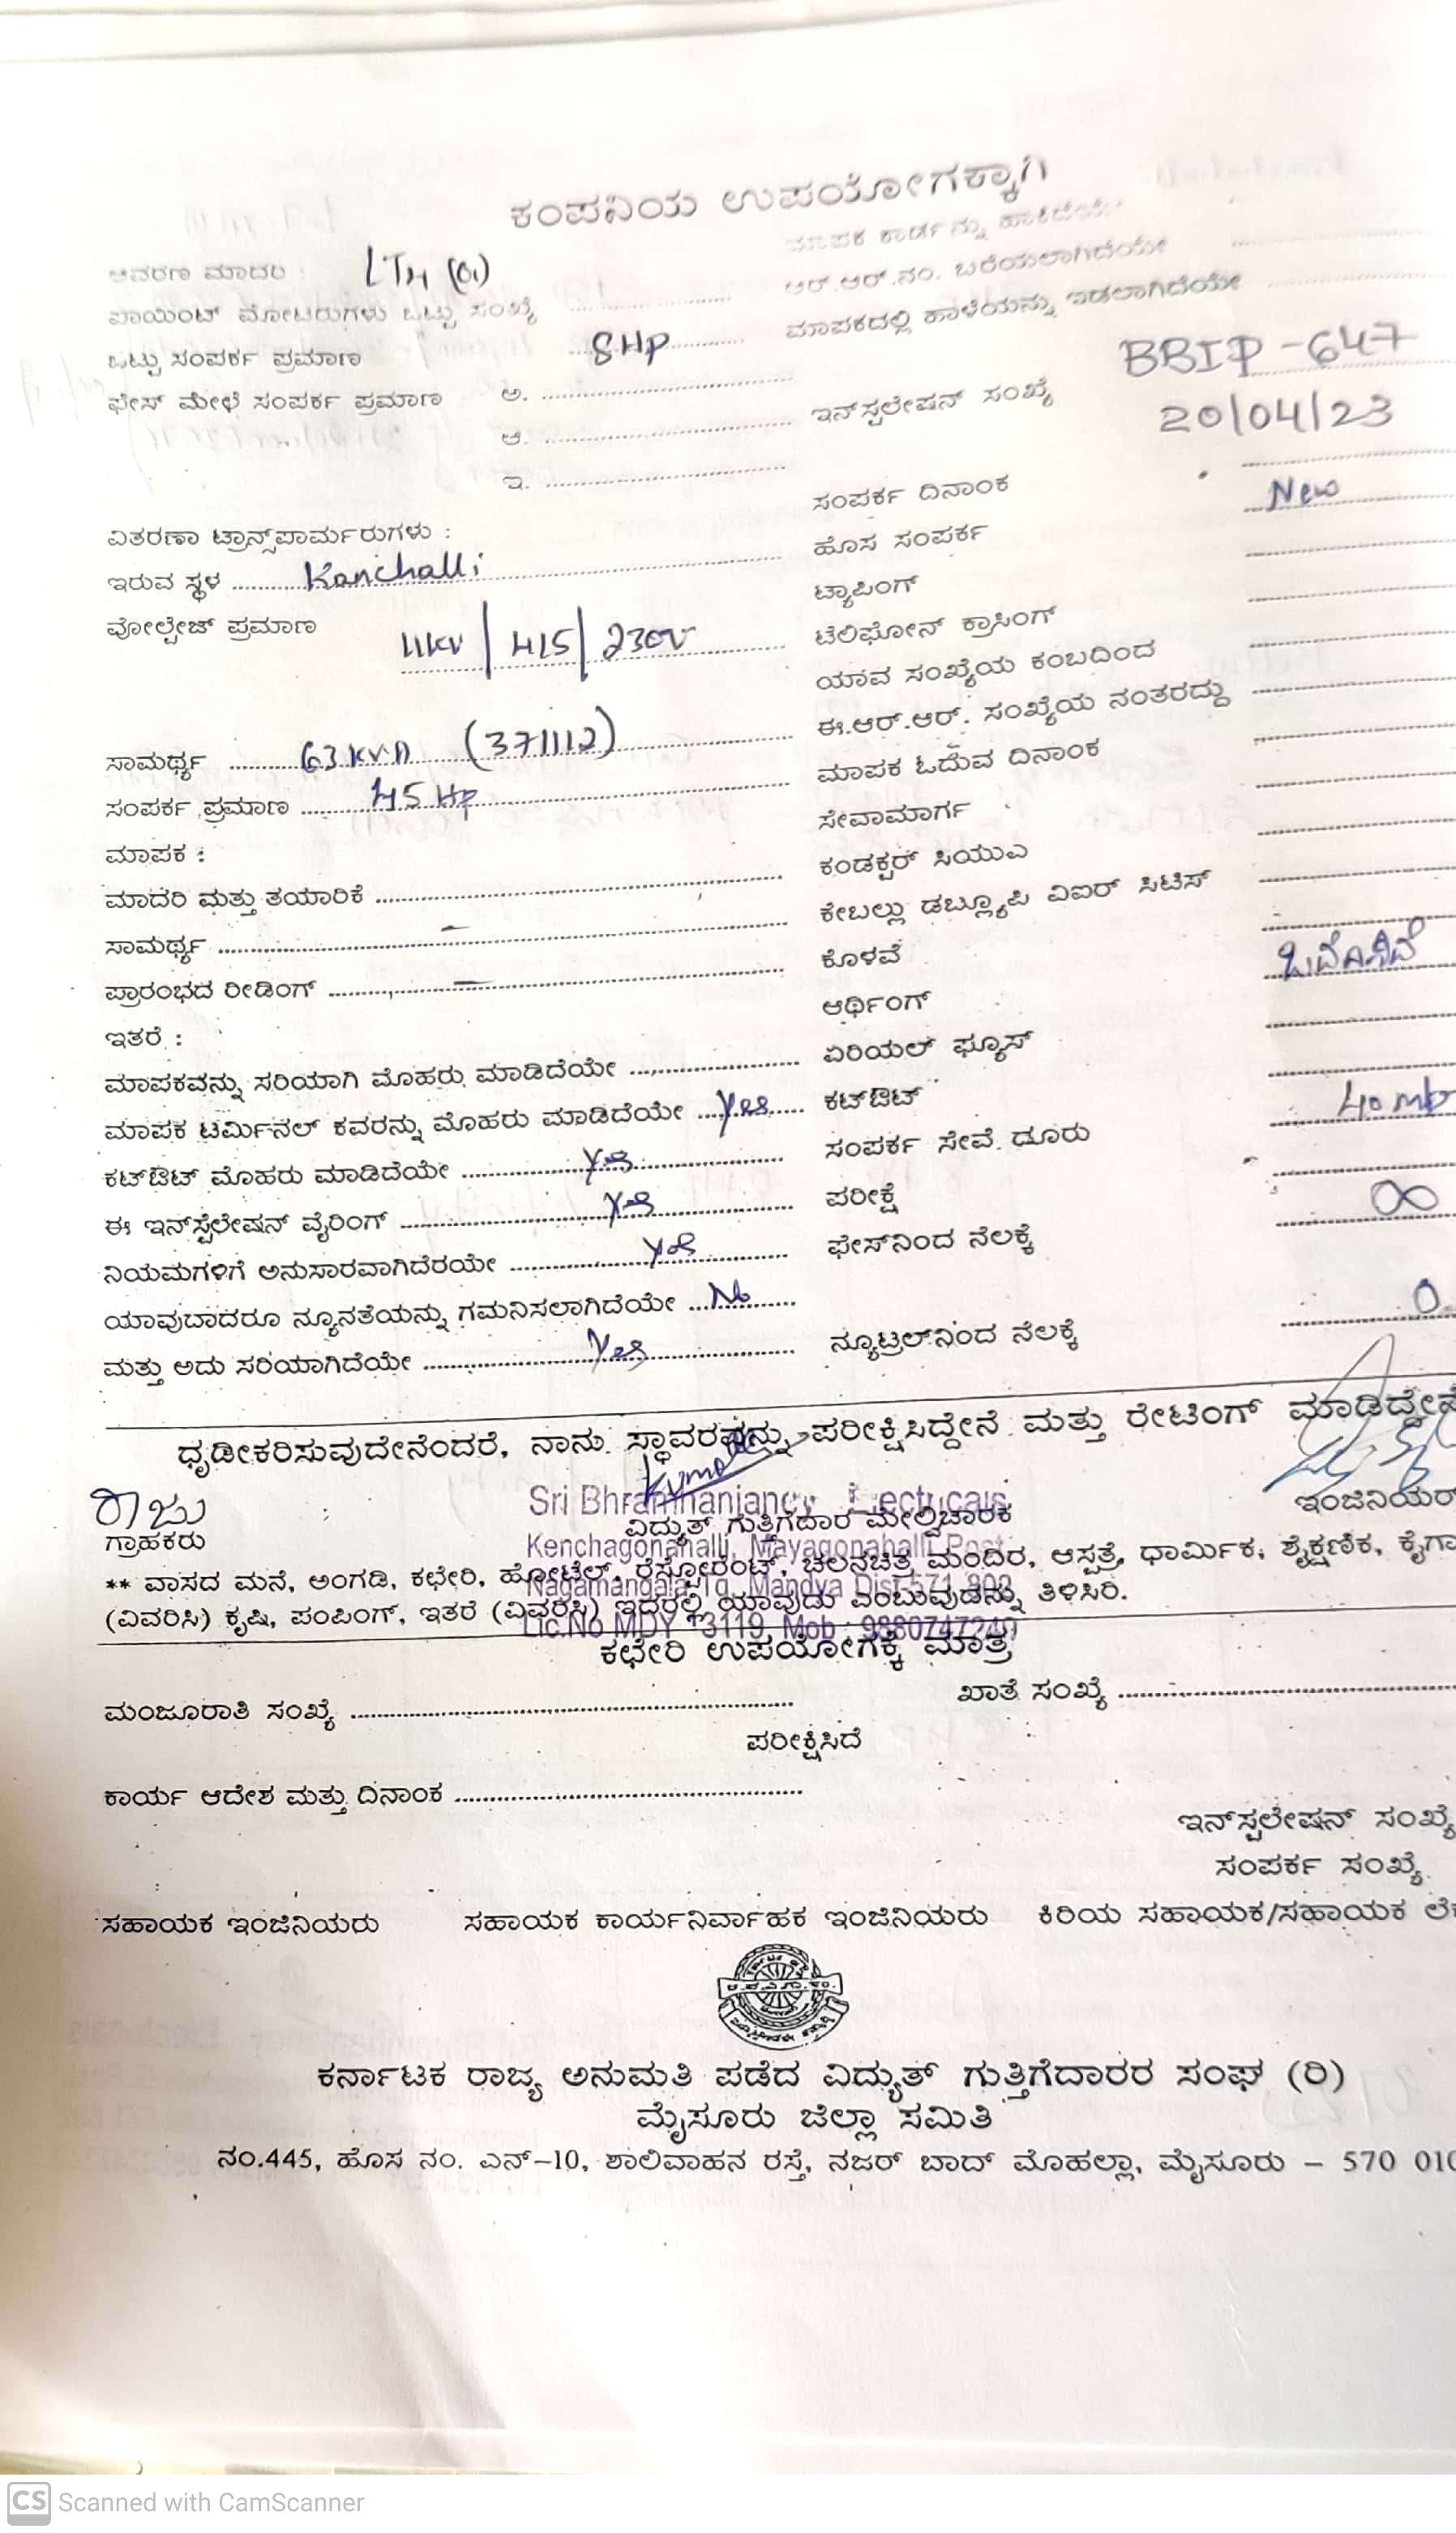 ಕಂಪನಿಯ ಉಪಯೋಗಕ್ಕಾಗಿ
ಆವರಣ ಮಾದರಿ :
ಮಾಪಕ ಕಾರ್ಡನ್ನು ಹಾಕಿದೆಯೇ
ಪಾಯಿಂಟ್ ಮೋಟರುಗಳು ಒಟ್ಟು ಸಂಖ್ಯೆ
ಆರ್.ಆರ್.ನಂ. ಬರೆಯಲಾಗಿದೆಯೇ
ಒಟ್ಟು ಸಂಪರ್ಕ ಪ್ರಮಾಣ 8HP
ಮಾಪಕದಲ್ಲಿ ಹಾಳೆಯನ್ನು ಇಡಲಾಗಿದೆಯೇ
ಫೇಸ್ ಮೇಲೆ ಸಂಪರ್ಕ ಪ್ರಮಾಣ ಅ.
BBIP-647
ಆ.
ಇನ್‌ಸ್ಪಲೇಷನ್ ಸಂಖ್ಯೆ 20/04/23
ಇ.
ಸಂಪರ್ಕ ದಿನಾಂಕ New
ವಿತರಣಾ ಟ್ರಾನ್ಸ್‌ಪಾರ್ಮರುಗಳು :
ಹೊಸ ಸಂಪರ್ಕ
ಇರುವ ಸ್ಥಳ Kanchalli
ಟ್ಯಾಪಿಂಗ್
ವೋಲ್ಟೇಜ್ ಪ್ರಮಾಣ 11KV | 415 | 230V
ಟೆಲಿಫೋನ್ ಕ್ರಾಸಿಂಗ್
ಯಾವ ಸಂಖ್ಯೆಯ ಕಂಬದಿಂದ
ಸಾಮರ್ಥ್ಯ 63 KVA (371112)
ಈ.ಆರ್.ಆರ್. ಸಂಖ್ಯೆಯ ನಂತರದ್ದು
ಸಂಪರ್ಕ ಪ್ರಮಾಣ 45 Hp
ಮಾಪಕ ಓದುವ ದಿನಾಂಕ
ಮಾಪಕ :
ಸೇವಾಮಾರ್ಗ
ಮಾದರಿ ಮತ್ತು ತಯಾರಿಕೆ
ಕಂಡಕ್ಟರ್ ಸಿಯುಎ
ಸಾಮರ್ಥ್ಯ
ಕೇಬಲ್ಲು ಡಬ್ಲ್ಯೂಪಿ ವಿಐರ್ ಸಿಟಿಸ್
ಪ್ರಾರಂಭದ ರೀಡಿಂಗ್
ಕೊಳವೆ
ಇತರೆ :
ಆರ್ಥಿಂಗ್
ಮಾಪಕವನ್ನು ಸರಿಯಾಗಿ ಮೊಹರು ಮಾಡಿದೆಯೇ
ಏರಿಯಲ್ ಫ್ಯೂಸ್
ಮಾಪಕ ಟರ್ಮಿನಲ್ ಕವರನ್ನು ಮೊಹರು ಮಾಡಿದೆಯೇ Yes
ಕಟ್‌ಔಟ್
ಕಟ್‌ಔಟ್ ಮೊಹರು ಮಾಡಿದೆಯೇ Yes
ಸಂಪರ್ಕ ಸೇವೆ ದೂರು
ಈ ಇನ್‌ಸ್ಟೆಲೇಷನ್ ವೈರಿಂಗ್ Yes
ಪರೀಕ್ಷೆ
ನಿಯಮಗಳಿಗೆ ಅನುಸಾರವಾಗಿದೆರಯೇ Yes
ಫೇಸ್‌ನಿಂದ ನೆಲಕ್ಕೆ ∞
ಯಾವುಬಾದರೂ ನ್ಯೂನತೆಯನ್ನು ಗಮನಿಸಲಾಗಿದೆಯೇ No
ಮತ್ತು ಅದು ಸರಿಯಾಗಿದೆಯೇ Yes
ನ್ಯೂಟ್ರಲ್‌ನಿಂದ ನೆಲಕ್ಕೆ 0
ಧೃಡೀಕರಿಸುವುದೇನೆಂದರೆ, ನಾನು ಸ್ಥಾವರವನ್ನು ಪರೀಕ್ಷಿಸಿದ್ದೇನೆ ಮತ್ತು ರೇಟಿಂಗ್ ಮಾಡಿದ್ದೇನೆ
ರಾಜು
Sri Bhramhanjaney Electricals
ಗ್ರಾಹಕರು ವಿದ್ಯುತ್ ಗುತ್ತಿಗೆದಾರ ಮೇಲ್ವಿಚಾರಕ ಇಂಜಿನಿಯರ್
Kenchagonahalli, Mayagonahalli Post
** ವಾಸದ ಮನೆ, ಅಂಗಡಿ, ಕಛೇರಿ, ಹೋಟೆಲ್, ರೆಸ್ಟೋರೆಂಟ್, ಚಲನಚಿತ್ರ ಮಂದಿರ, ಆಸ್ಪತ್ರೆ, ಧಾರ್ಮಿಕ, ಶೈಕ್ಷಣಿಕ, ಕೈಗಾ
Nagamangala Tq, Mandya Dist-571 802
(ವಿವರಿಸಿ) ಕೃಷಿ, ಪಂಪಿಂಗ್, ಇತರೆ (ವಿವರಿಸಿ) ಇದರಲ್ಲಿ ಯಾವುದು ಎಂಬುವುದನ್ನು ತಿಳಿಸಿರಿ.
Lic.No MDY 13119, Mob : 9880747240
ಕಛೇರಿ ಉಪಯೋಗಕ್ಕೆ ಮಾತ್ರ
ಮಂಜೂರಾತಿ ಸಂಖ್ಯೆ ಖಾತೆ ಸಂಖ್ಯೆ
ಪರೀಕ್ಷಿಸಿದೆ
ಕಾರ್ಯ ಆದೇಶ ಮತ್ತು ದಿನಾಂಕ
ಇನ್‌ಸ್ಪಲೇಷನ್ ಸಂಖ್ಯೆ
ಸಂಪರ್ಕ ಸಂಖ್ಯೆ
ಸಹಾಯಕ ಇಂಜಿನಿಯರು ಸಹಾಯಕ ಕಾರ್ಯನಿರ್ವಾಹಕ ಇಂಜಿನಿಯರು ಕಿರಿಯ ಸಹಾಯಕ/ಸಹಾಯಕ ಲೆ
ಕರ್ನಾಟಕ ರಾಜ್ಯ ಅನುಮತಿ ಪಡೆದ ವಿದ್ಯುತ್ ಗುತ್ತಿಗೆದಾರರ ಸಂಘ (ರಿ)
ಮೈಸೂರು ಜಿಲ್ಲಾ ಸಮಿತಿ
ನಂ.445, ಹೊಸ ನಂ. ಎನ್–10, ಶಾಲಿವಾಹನ ರಸ್ತೆ, ನಜರ್ ಬಾದ್ ಮೊಹಲ್ಲಾ, ಮೈಸೂರು – 570 010
CS Scanned with CamScanner